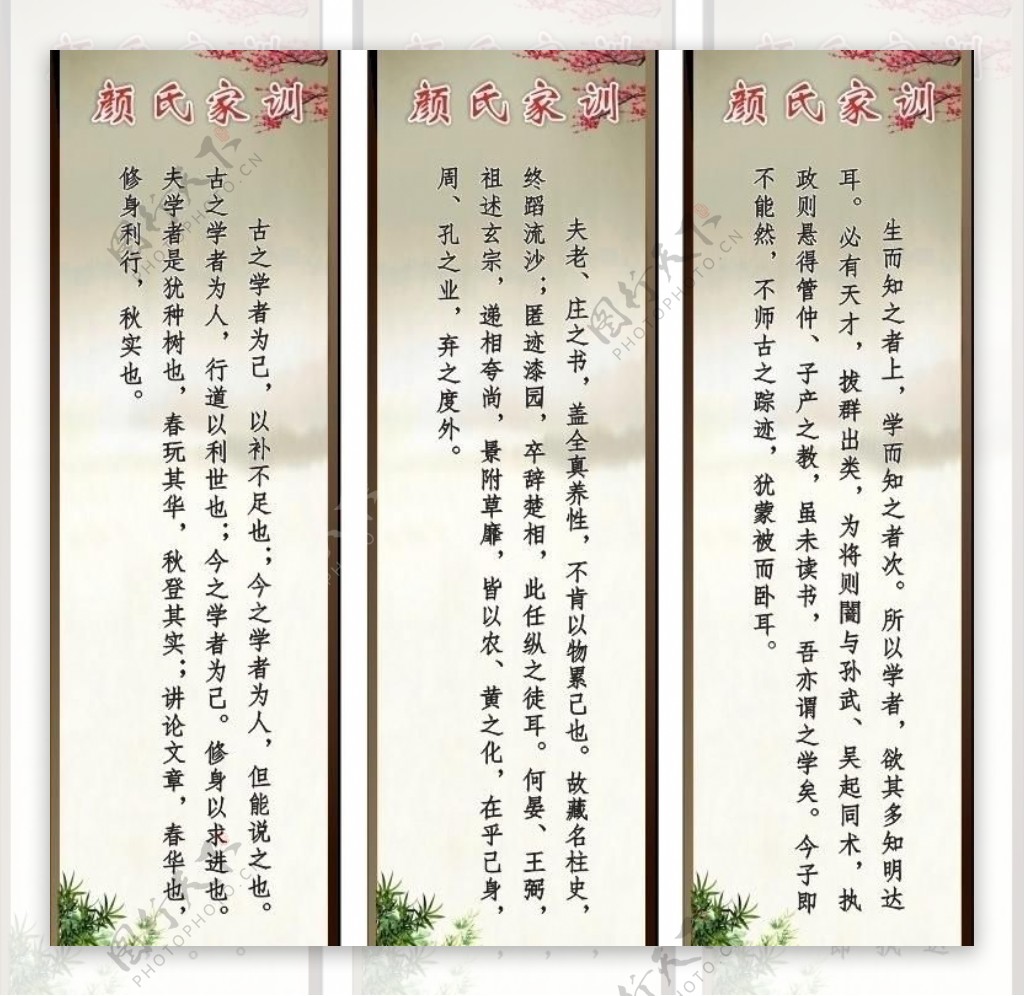 颜氏家训
古之学者为己，以补不足也；今之学者为人，但能说之也。
古之学者为人，行道以利世也；今之学者为己。修身以求进也。
夫学者是犹种树也，春玩其华，秋登其实；讲论文章，春华也，
修身利行，秋实也。
颜氏家训
夫老、庄之书，盖全真养性，不肯以物累己也。故藏名柱史，
终蹈流沙；匿迹漆园，卒辞楚相，此任纵之徒耳。何晏、王弼，
祖述玄宗，递相夸尚，景附草靡，皆以农、黄之化，在乎己身，
周、孔之业，弃之度外。
颜氏家训
生而知之者上，学而知之者次。所以学者，欲其多知明达
耳。必有天才，拔群出类，为将则闇与孙武、吴起同术，执
政则悬得管仲、子产之教，虽未读书，吾亦谓之学矣。今子即
不能然，不师古之踪迹，犹蒙被而卧耳。
图行天下
PHOTOPHOTO.CN
图行天下
PHOTOPHOTO.CN
图行天下
PHOTOPHOTO.CN